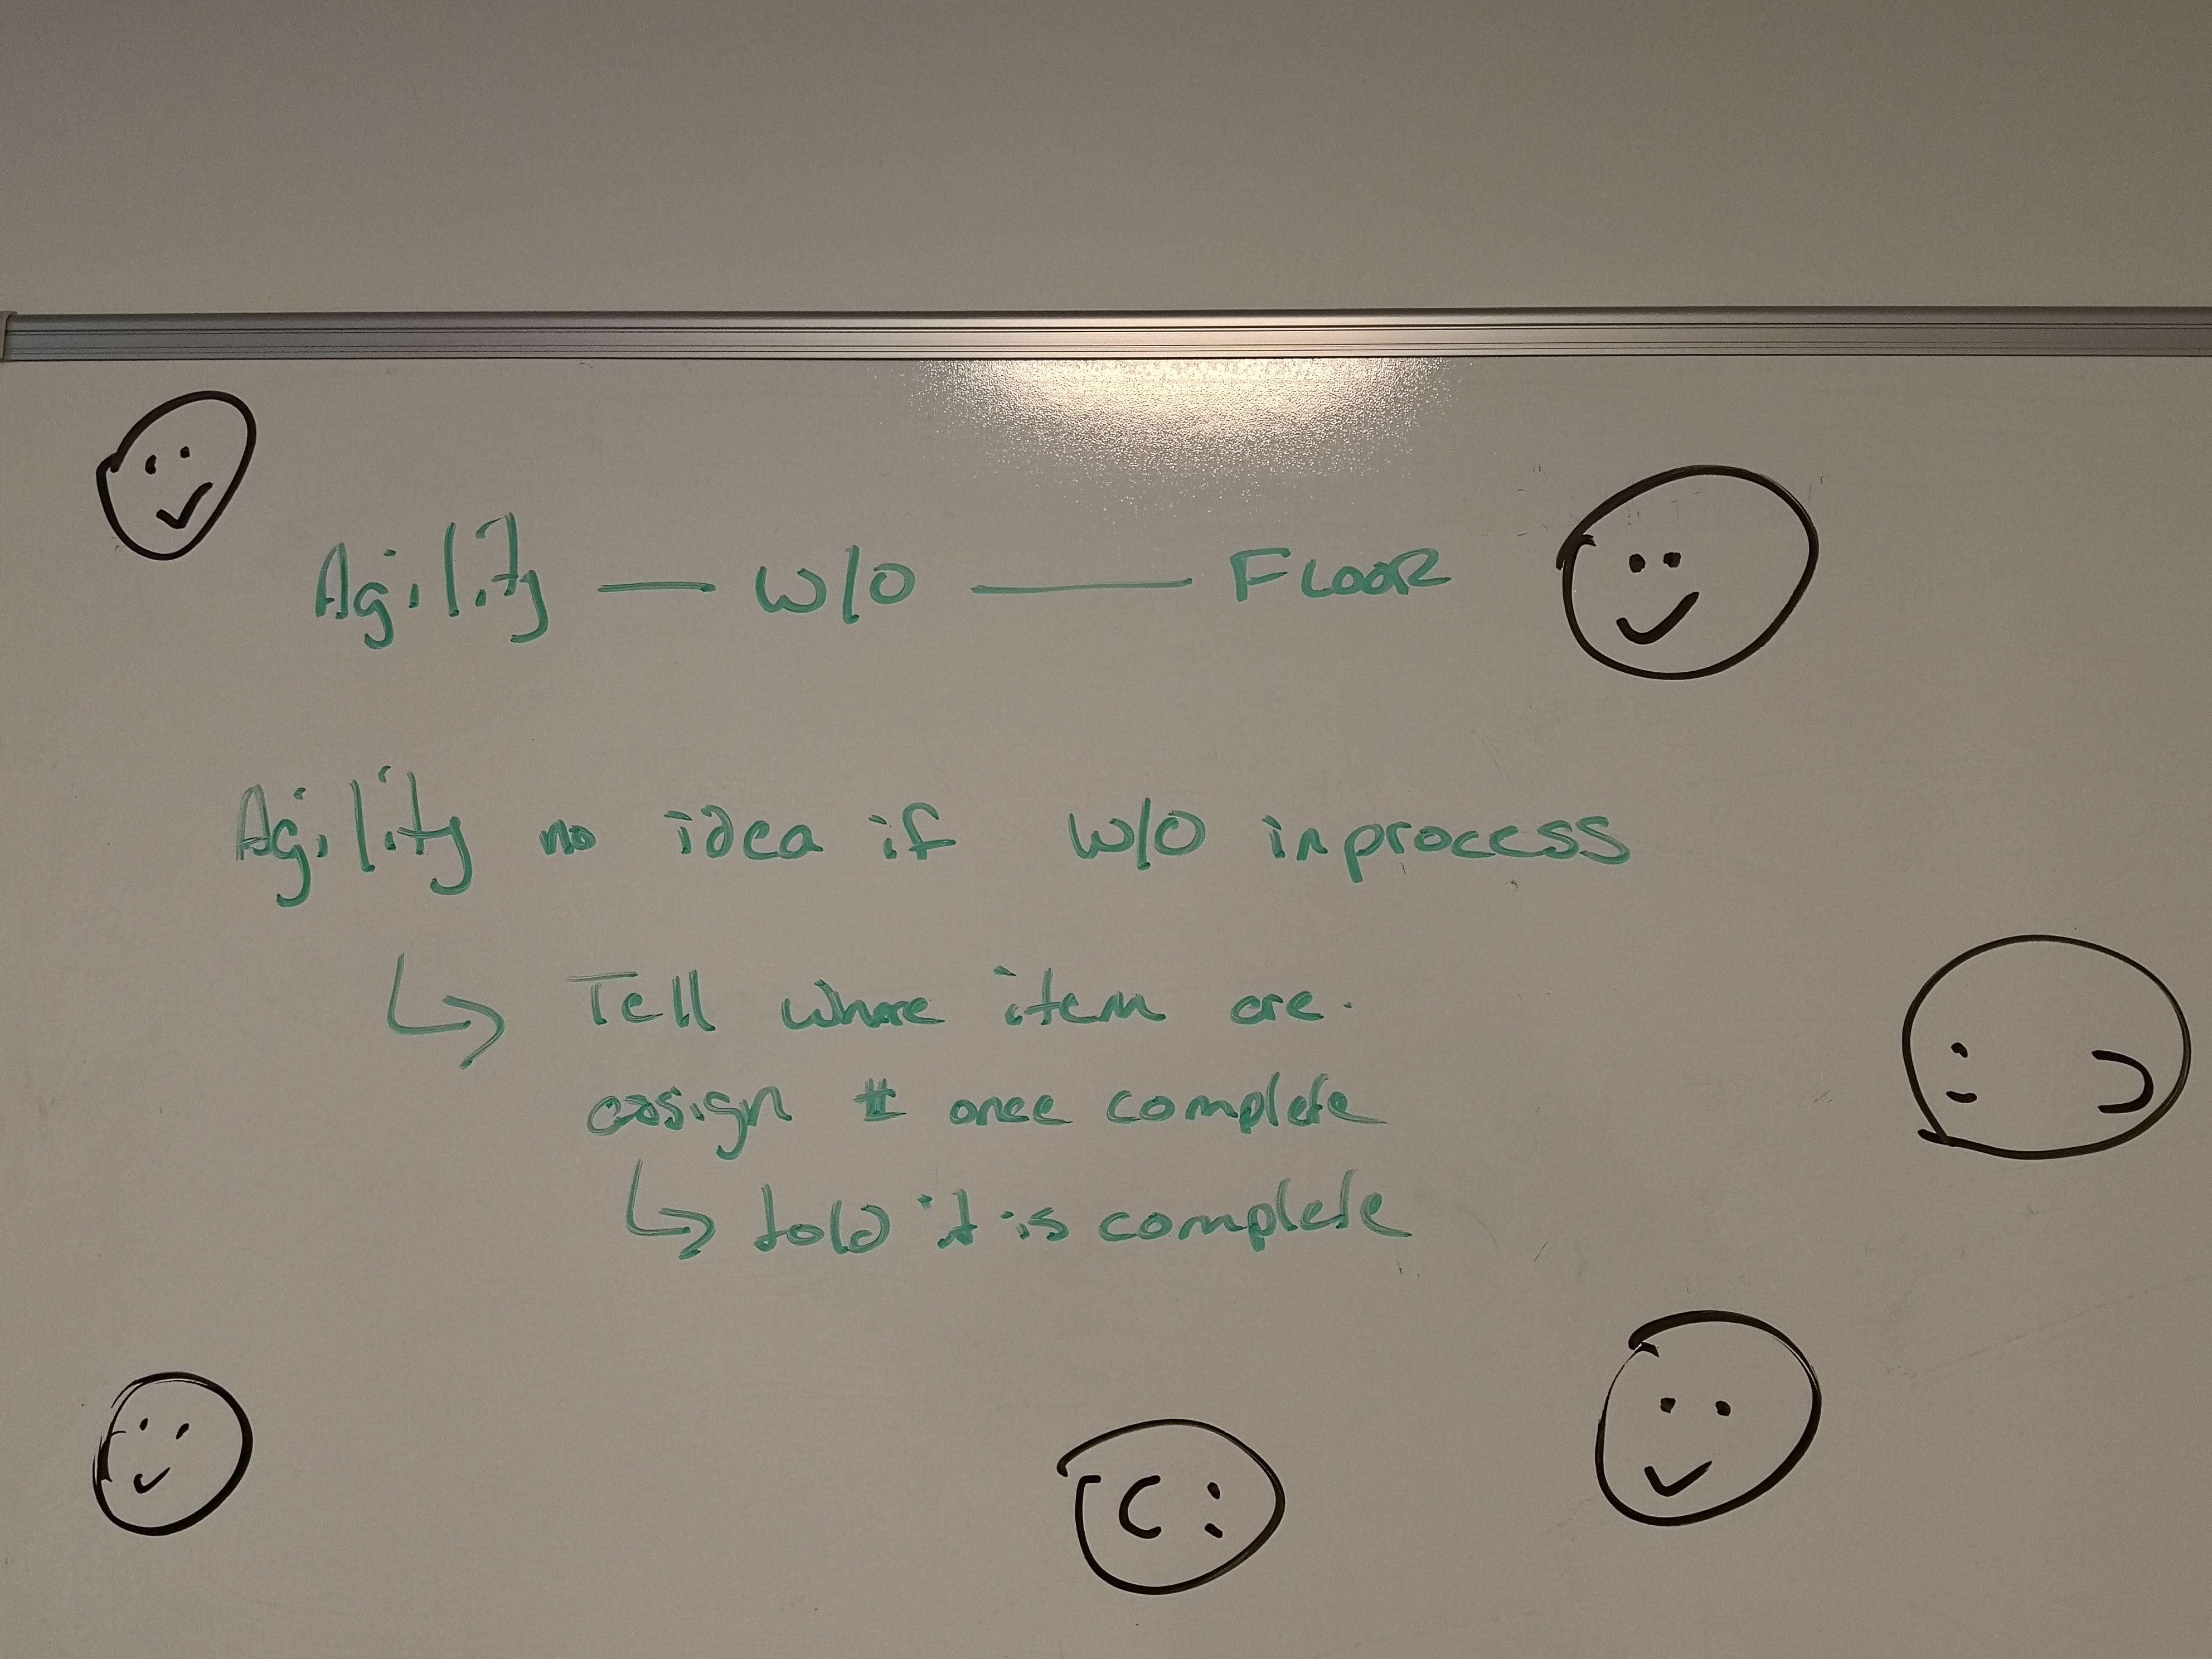 Agility — W/O — FLOOR
Agility no idea if W/O in process
↳ Tell where item are.
assign # once complete
↳ told it is complete